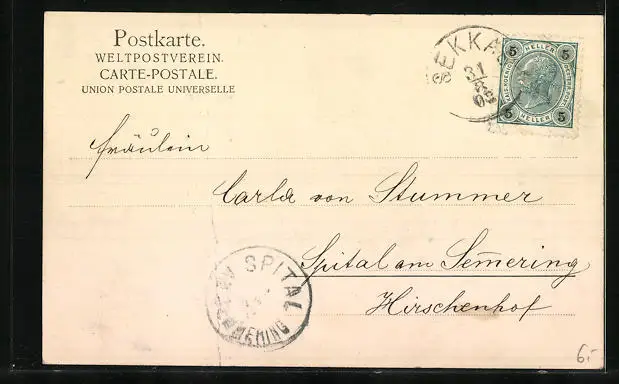 Postkarte.
WELTPOSTVEREIN.
CARTE-POSTALE.
UNION POSTALE UNIVERSELLE
SEKKA
31
5 HELLER 5
5 HELLER 5
Fräulein
Carla von Stummer
Spital am Sem̄ering
Hirschenhof
SPITAL AM SEMMERING
6.-